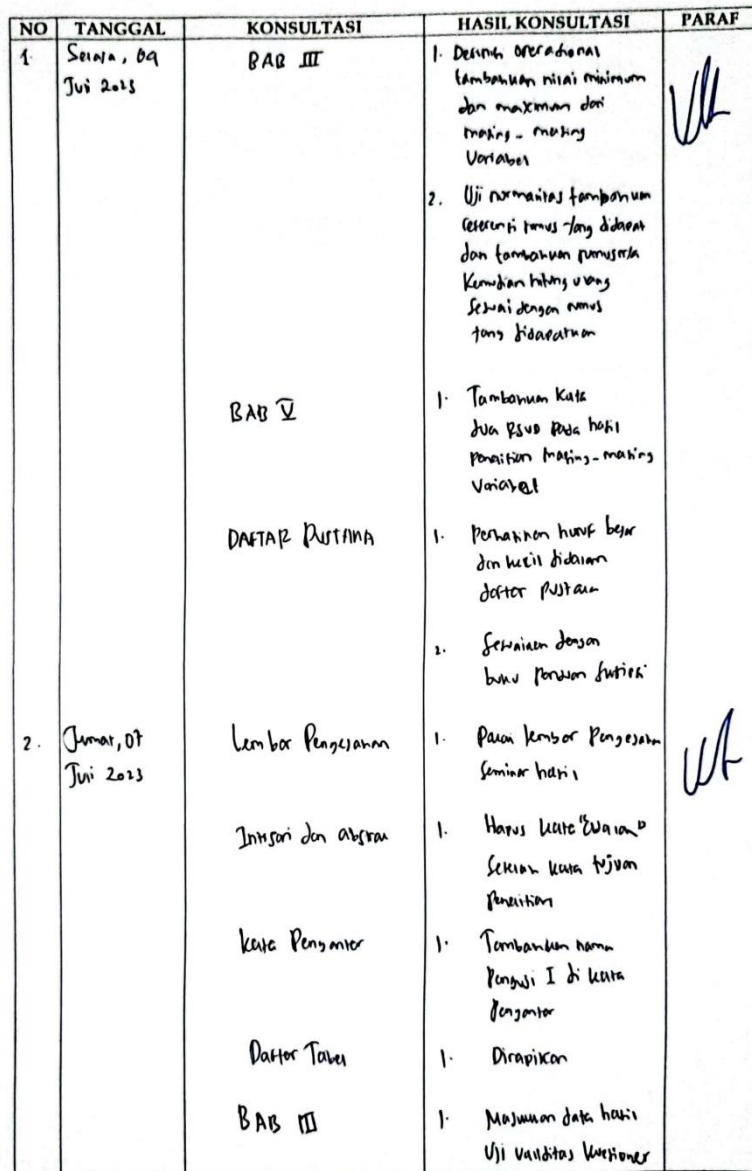 NO TANGGAL KONSULTASI HASIL KONSULTASI PARAF
1. Selasa, 04
Juli 2023
BAB III
1. Definisi operasional
tambahkan nilai minimum
dan maximum dari
masing-masing
Variabel
2. Uji normalitas tambahkan
referensi rumus yang didapat
dan tambahkan rumusnya
Kemudian hitung ulang
Sesuai dengan rumus
yang didapatkan
BAB V
1. Tambahkan Kata
dua RSUD pada hasil
penelitian masing-masing
Variabel
DAFTAR PUSTAKA
1. Perhatikan huruf besar
dan kecil didalam
daftar pustaka
2. Sesuaikan dengan
buku panduan skripsi
2. Jumat, 07
Juli 2023
Lembar Pengesahan
1. Pakai lembar pengesahan
Seminar hasil
Intisari dan abstrak
1. Hapus kata
Setelah kata tujuan
Penelitian
Kata Pengantar
1. Tambahkan nama
Penguji I di kata
Pengantar
Daftar Tabel
1. Dirapikan
BAB III
1. Masukkan data hasil
Uji validitas kuesioner